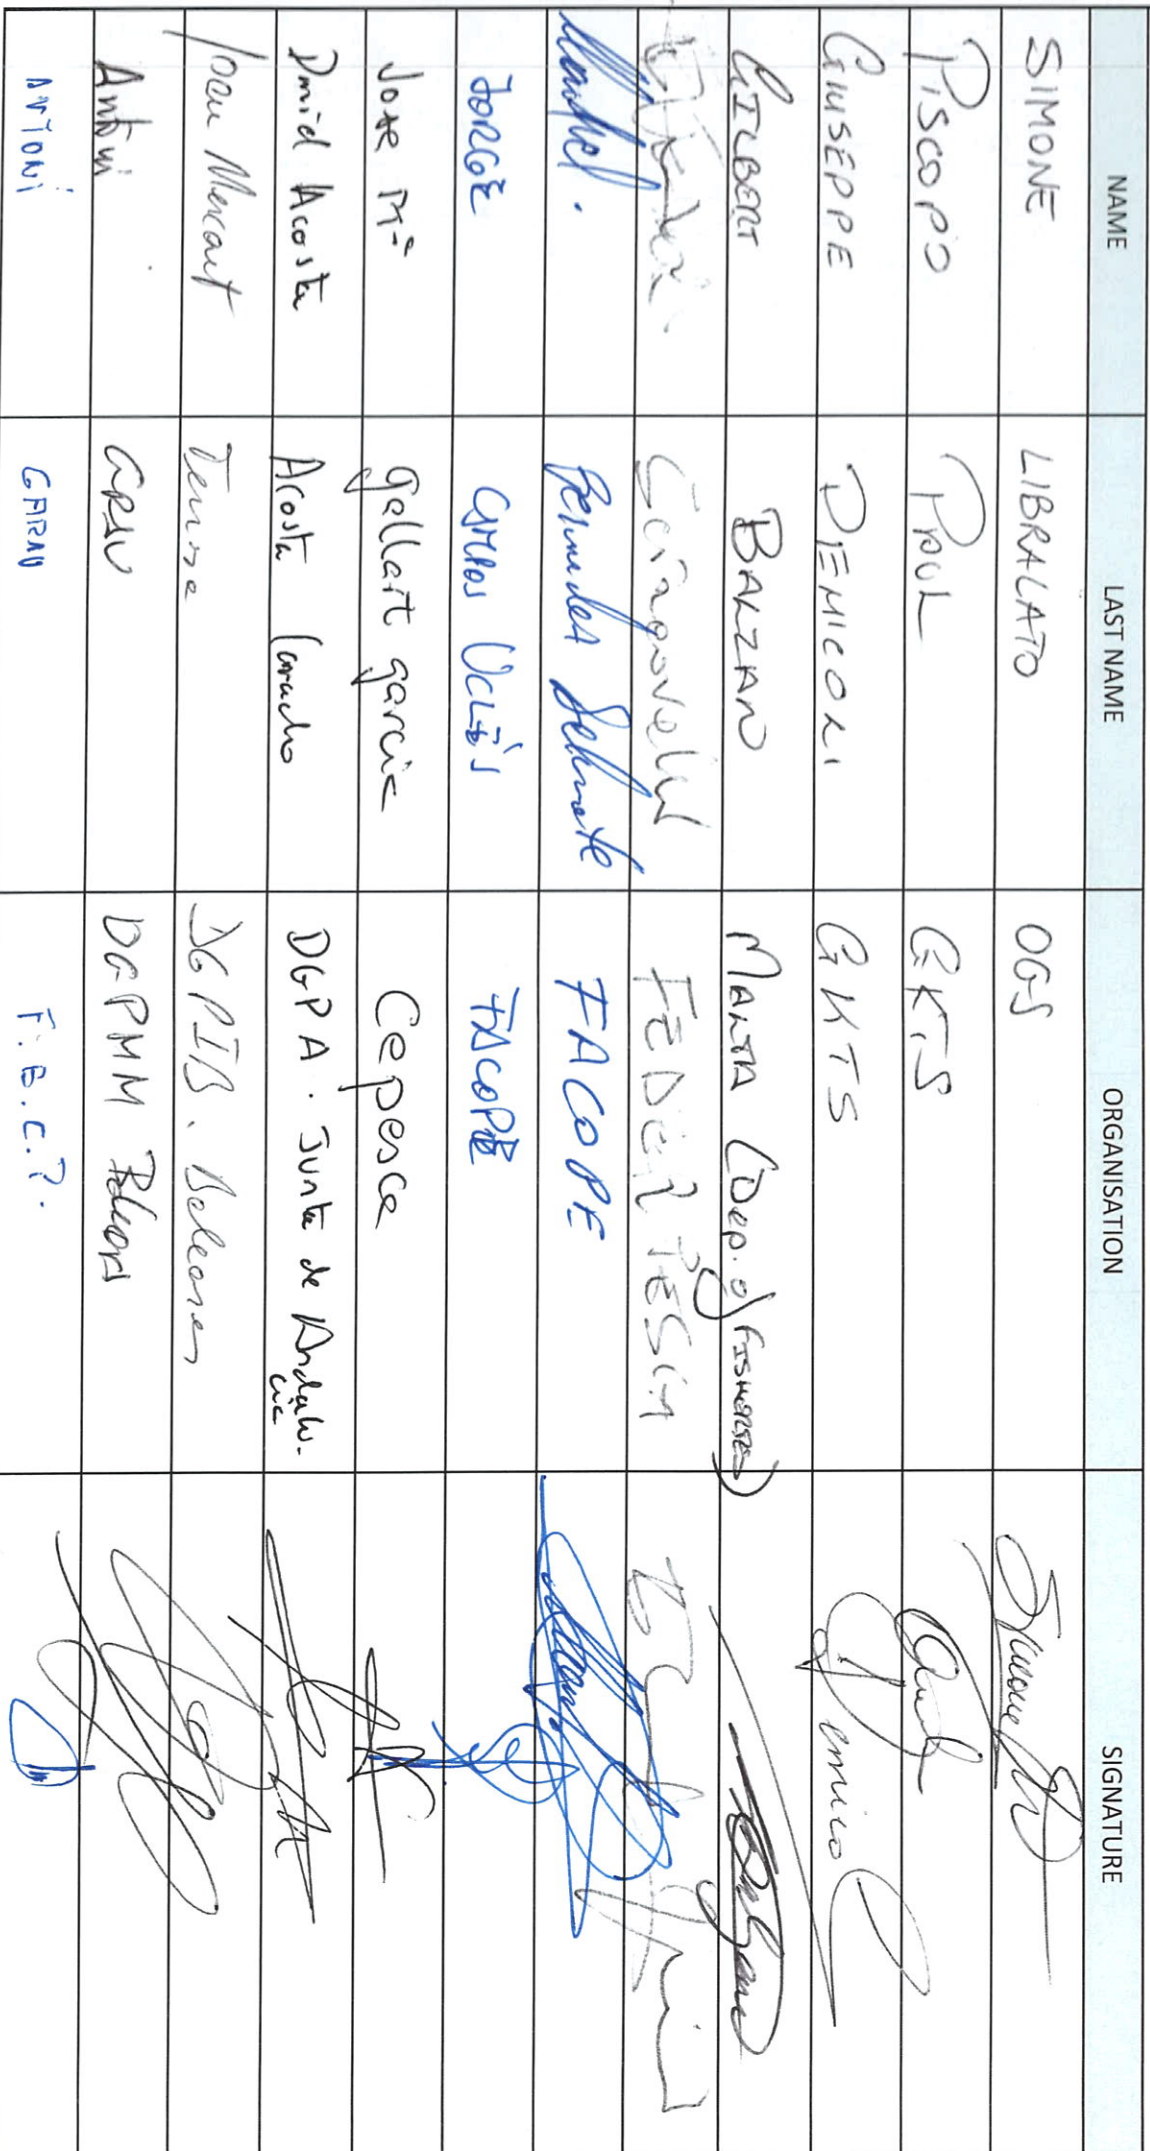 NAME LAST NAME ORGANISATION SIGNATURE
SIMONE LIBRALATO OGS
PISCOPO PAUL GKTS
GIUSEPPE DEMICOLI GKTS
GILBERT BARZAN MALTA (Dep. of FISHERIES)
FEDERPESCA
Manuel. FACOPE
JORGE CAMPOS UCLÉS FACOPE
Jose Mª gallart garcia Cepesca
David Acosta Acosta Camacho DGPA. Junta de Andalu-
cia
Joan Mercant Terrasa DGPIB. Baleares
Antoni GRAU DGPMM
ANTONI GARAU F.B.C.P.